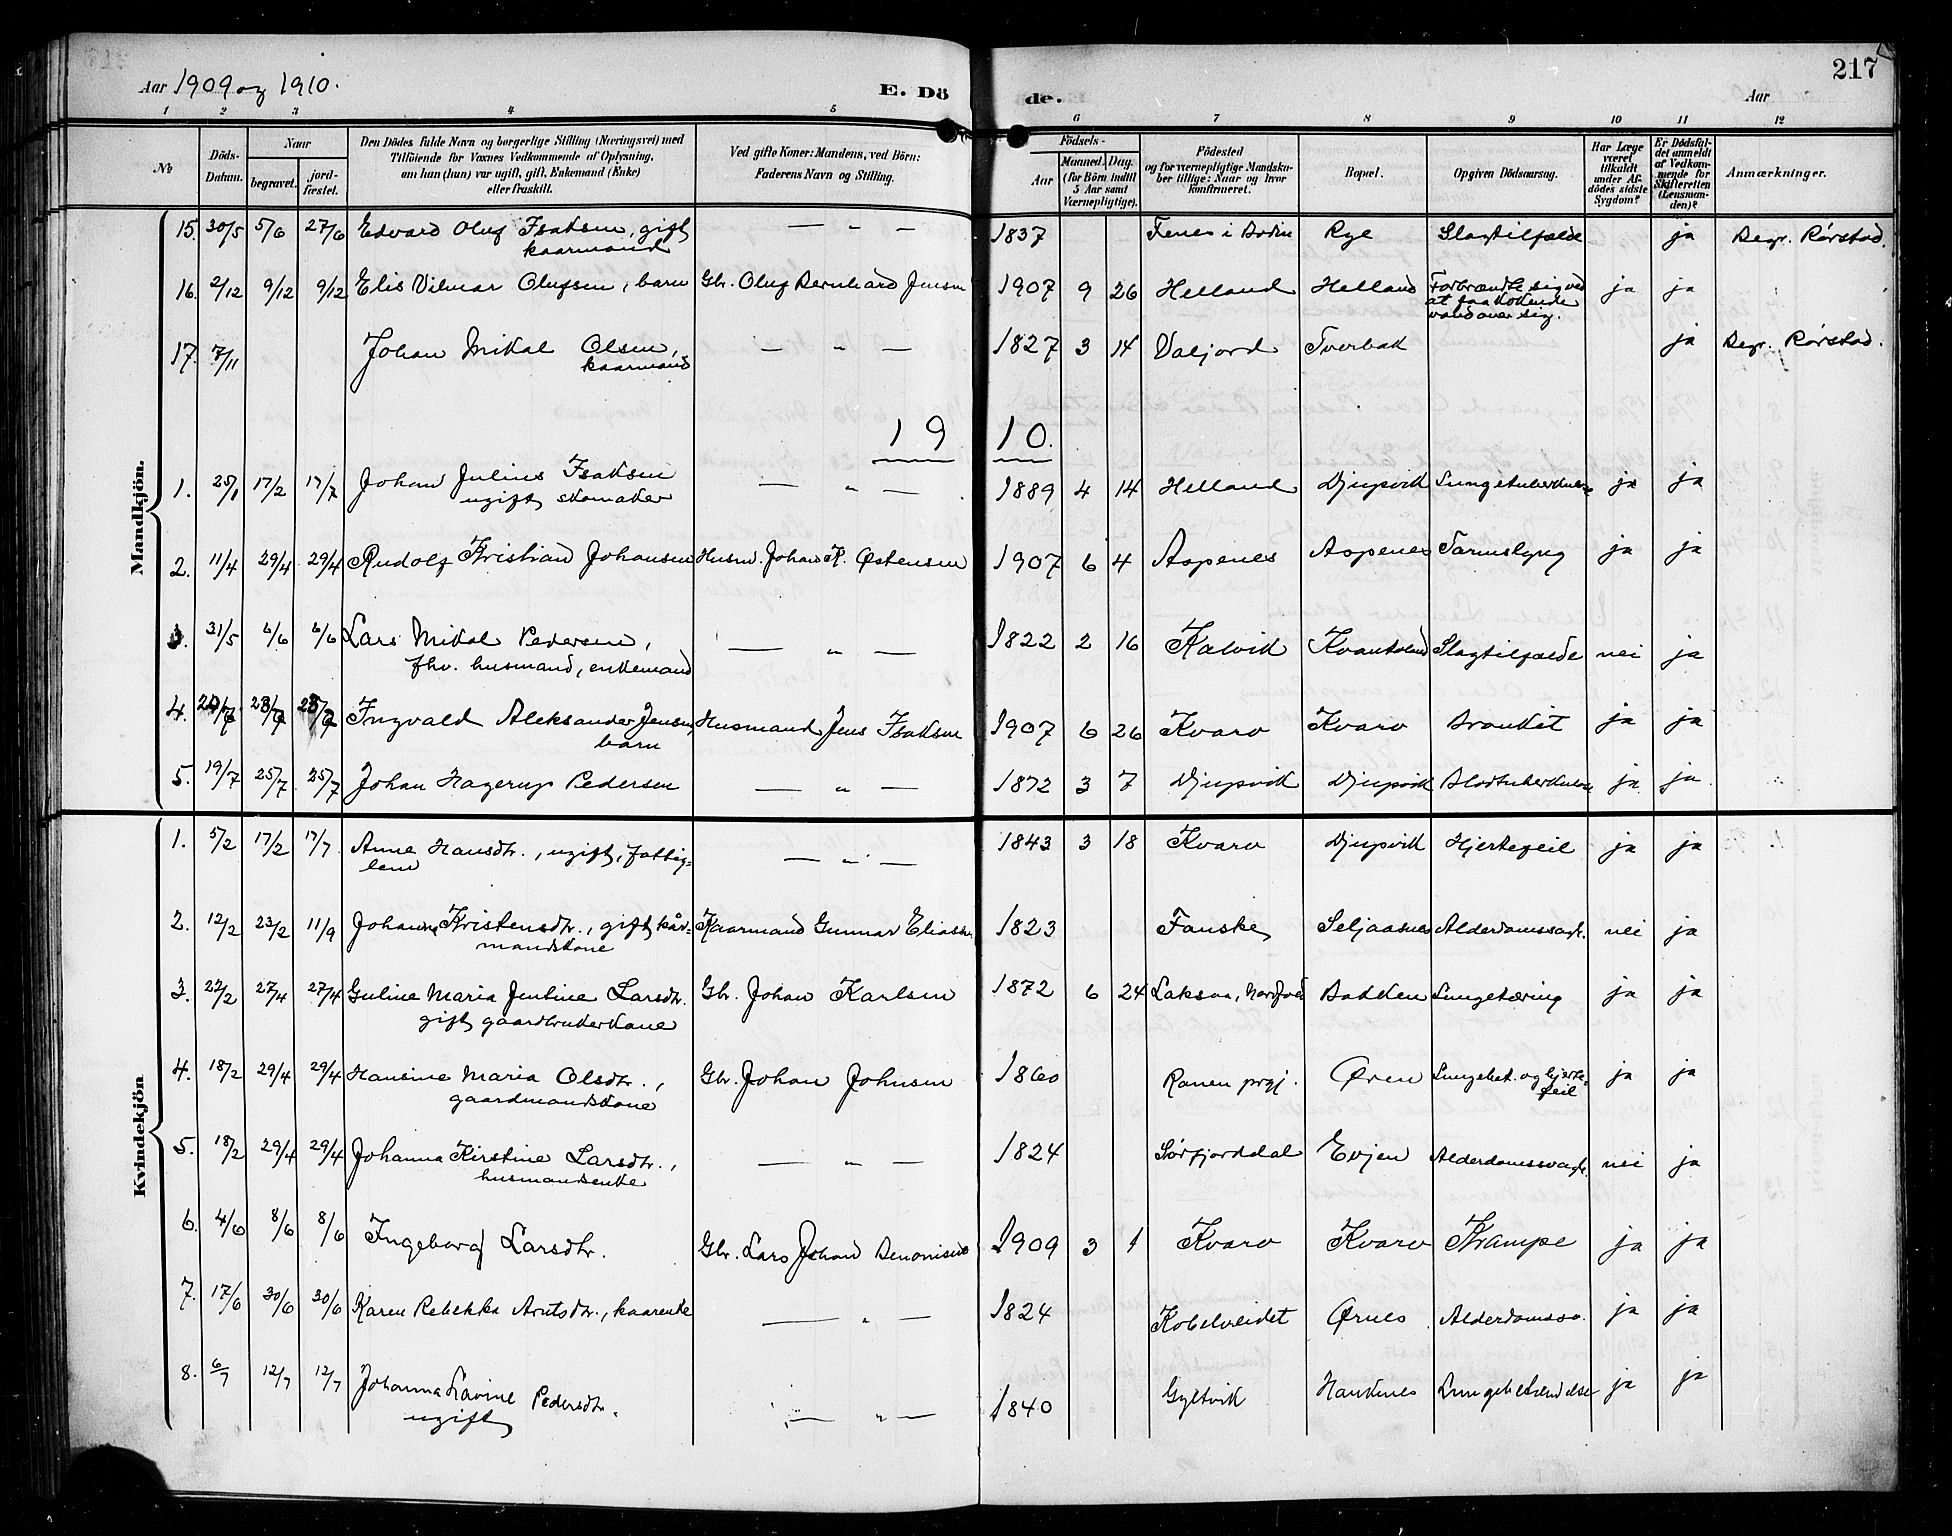 217
Aar 1909 og 1910. E. Dö de. Aar
1 2 3 4 5 6 7 8 9 10 11 12
No Döds-Datum. Naar begravet. jordfæstet. Den Dödes fulde Navn og borgerlige Stilling (Næringsvei) med Tilföiende for Voxnes Vedkommende af Oplysning, om han (hun) var ugift, gift, Enkemand (Enke) eller fraskilt. Ved gifte Koner: Mandens, ved Börn: Faderens Navn og Stilling. Födsels- Aar Maaned. Dag. (for Börn indtil 5 Aar samt Værnepligtige). Födested og for værnepligtige Mandskaber tillige: Naar og hvor konfirmeret. Bopæl. Opgiven Dödsaarsag. Har Læge været tilkaldt under Afdödes sidste Sygdom? Er Dödsfaldet anmeldt af Vedkommende for Skifteretten (Lensmanden)? Anmærkninger.
Mandkjön.
15. 30/5 5/6 27/6 Edvard Oluf Isaksen, gift kaarmand — „ — 1837 Fenes i Bodin Rye Slagtilfælde ja Begr. Rørstad.
16. 2/12 9/12 9/12 Elis Vilmar Olufsen, barn Gbr. Oluf Bernhard Jensen 1907 9 26 Helland Helland Forbrændte sig ved at faa kokende vand over sig. ja ja
17. 7/11 Johan Mikal Olsen, kaarmand — „ — 1827 3 14 Valjord Tverbak ja Begr. Rørstad.
1910.
1. 25/1 17/2 17/7 Johan Julius Isaksen ugift skomaker — „ — 1889 4 14 Helland Djupvik Lungetuberkulose ja ja
2. 11/4 29/4 29/4 Rudolf Kristian Johansen Husm. Johan K. Østensen 1907 6 4 Aspenes Aspenes Tarmslyng ja ja
3. 31/5 6/6 6/6 Lars Mikal Pedersen, fhv. husmand, enkemand — „ — 1822 2 16 Kalvik Kvantoland Slagtilfælde nei ja
4. Ingvald Aleksander Jensen, barn Husmand Jens Isaksen 1907 6 26 Kvarv Kvarv Bronkit ja ja
5. 19/7 25/7 25/7 Johan Hagerup Pedersen — „ — 1872 3 7 Djupvik Djupvik Blodtuberkulose ja ja
Kvindekjön
1. 5/2 17/2 17/7 Anne Hansdtr., ugift, fattiglem — „ — 1843 3 18 Kvarv Djupvik Hjertefeil ja ja
2. 12/2 23/2 11/9 Johanna Kristensdtr., gift kårmandskone Kaarmand Gunnar Eliass. 1823 Fauske Seljaasnes Alderdomssvagh. nei ja
3. 22/2 27/4 27/4 Guline Maria Jentine Larsdtr. gift gaardbrukerkone Gbr. Johan Karlsen 1872 6 24 Laksaa, Nordfold Bakken Lungetæring ja ja
4. 18/2 29/4 29/4 Hansine Maria Olsdtr., gaardmandskone Gbr. Johan Johnsen 1860 Ranen prgj. Øren Lungebet. og hjertefeil ja ja
5. 18/2 29/4 29/4 Johanna Kirstine Larsdtr., husmandsenke — „ — 1824 Sørfjorddal Evjen Alderdomssvagh. nei ja
6. 4/6 8/6 8/6 Ingeborg Larsdtr. Gbr. Lars Johan Benonisen 1909 3 1 Kvarv Kvarv Krampe ja ja
7. 17/6 30/6 30/6 Karen Rebekka Arntsdtr., kaarenke — „ — 1824 Kobelveidet Ørnes Alderdomssv. ja ja
8. 6/7 12/7 12/7 Johanna Lavine Pedersdtr. ugift — „ — 1840 Gyltvik Hankenes Lungebetændelse ja ja